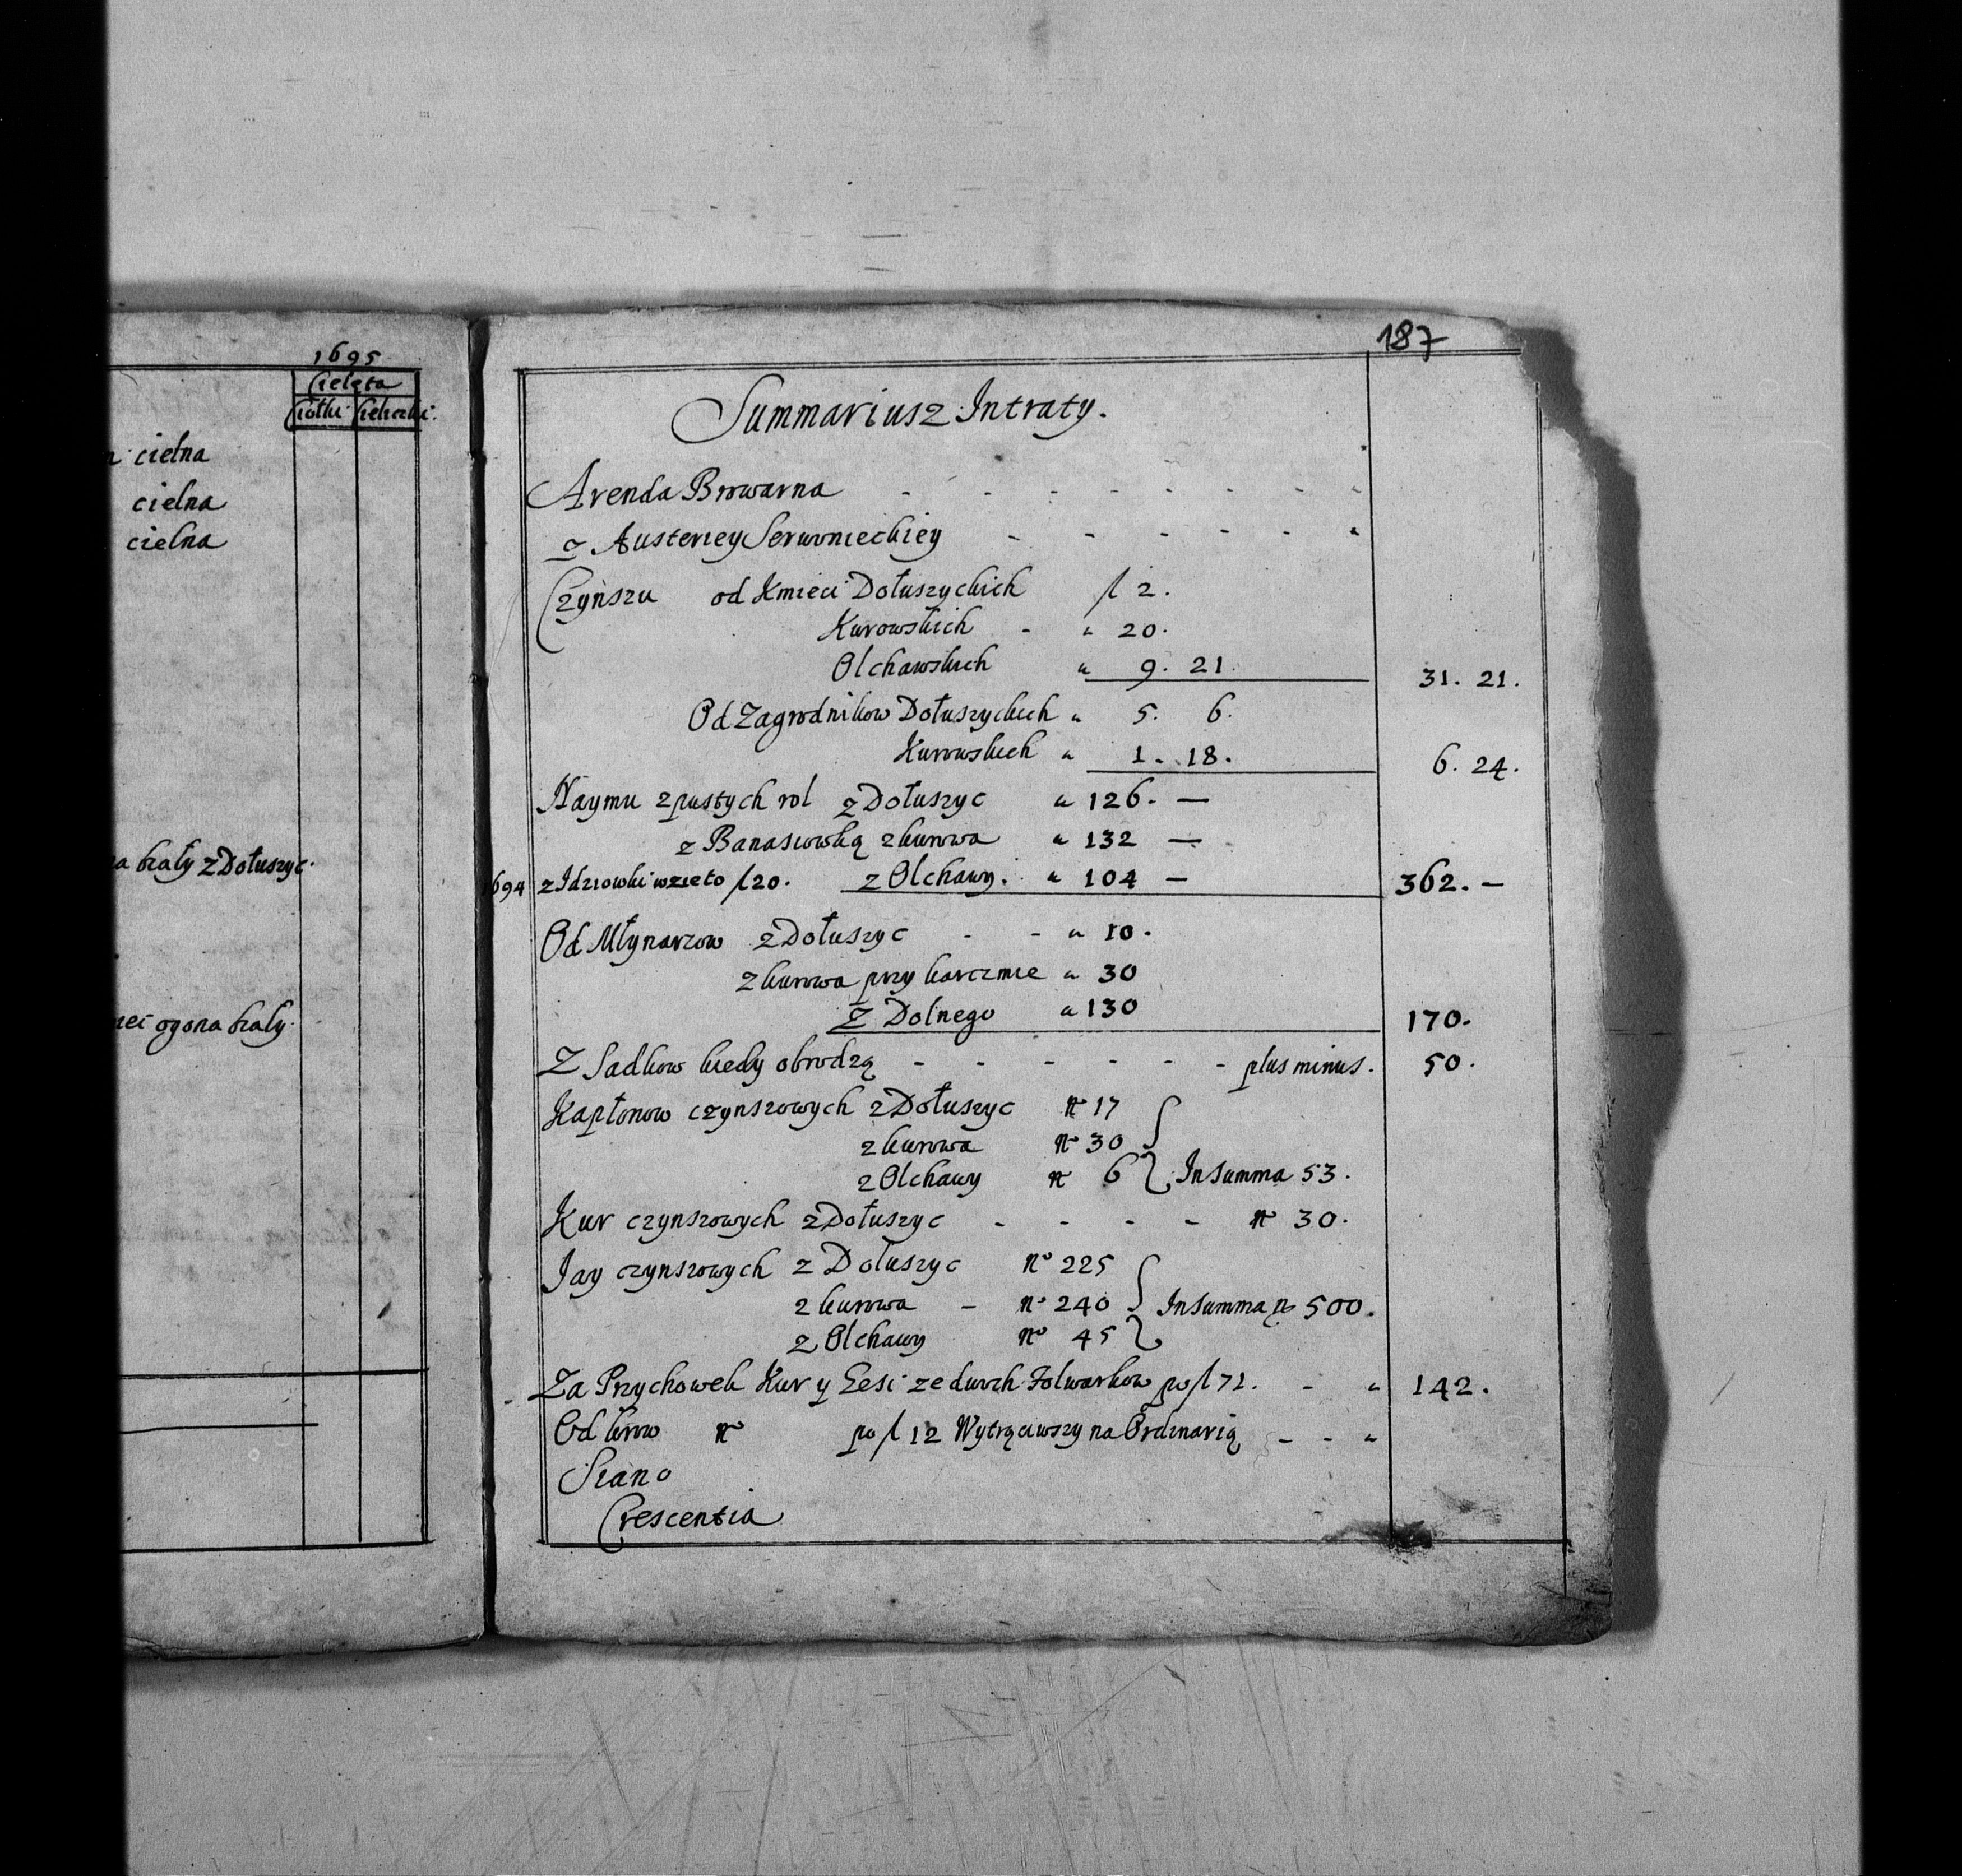 1695
Cielęta
Ciołki Cieliczki
cielna
cielna
cielna
biały z Dołuszyc
ogona biały
187
Summariusz Intraty.
Arenda Browarna - - - - - - - -
z Austeriey Serwonieckiey - - - - - -
Czynszu od Kmieci Dołuszyckich fl 2.
Kurowskich - " 20.
Olchawskich " 9. 21. 31. 21.
Od Zagrodnikow Dołuszyckich " 5. 6.
Kurowskich " 1. 18. 6. 24.
Naymu z pustych rol z Dołuszyc " 126. —
z Banasiowką z kurowa " 132 —
1694 z Idziowki wzieto fl 20. z Olchawy. " 104 — 362. —
Od Młynarzow z Dołuszyc - - " 10.
z kurowa przy karczmie " 30
Z Dolnego " 130 170.
Z Sadkow kiedy obrodzą - - - - - - plus minus. 50.
Kapłonow czynszowych z Dołuszyc No 17
z kurowa No 30
z Olchawy No 6 In Summa 53.
Kur czynszowych z Dołuszyc - - - - No 30.
Jay czynszowych z Dołuszyc No 225
z kurowa - No 240 In Summa No 500.
z Olchawy No 45
Za Przychowek Kur y Gesi ze dwuch Folwarkow po fl 71. - " 142.
Od krow No po fl 12 Wytrąciwszy na Ordinarią - - "
Siano
Crescentia